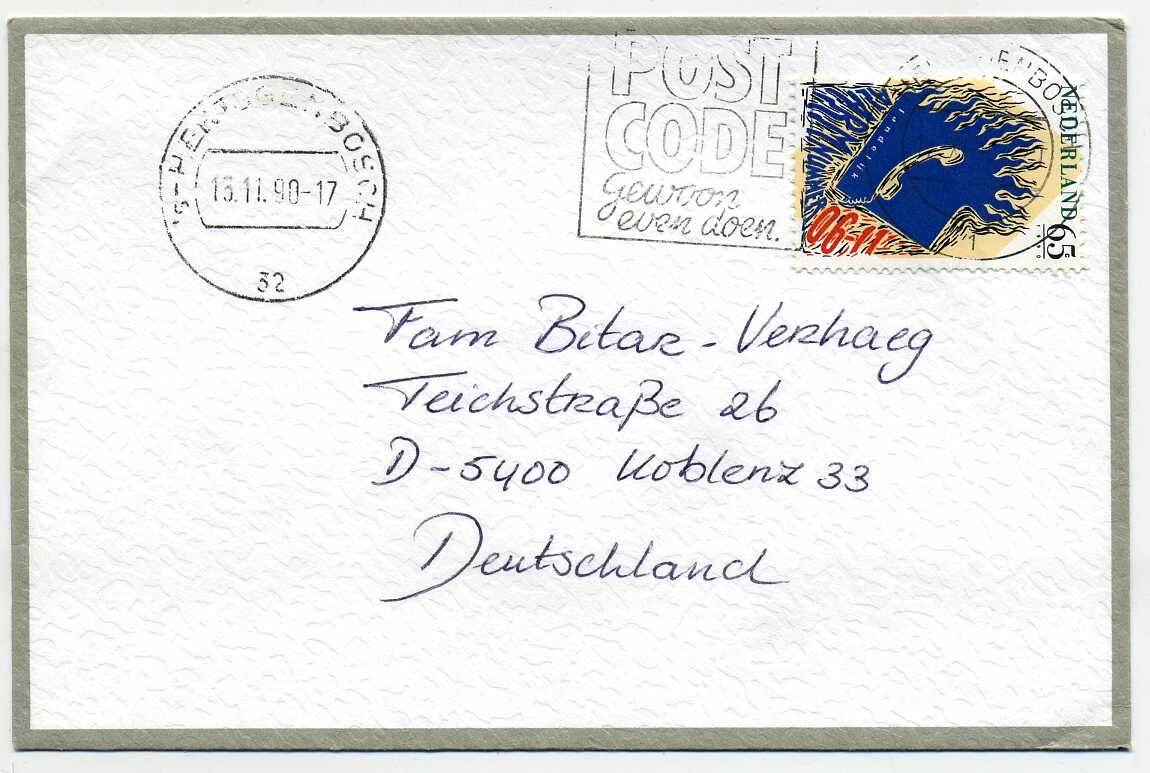 'S-HERTOGENBOSCH
13.11.90-17
32
POST
CODE
gewoon
even doen.
ENBOS
NEDERLAND 65c
landelijk
06-11
1
Fam Bitar - Verhaeg
Teichstraße 26
D-5400 Koblenz 33
Deutschland